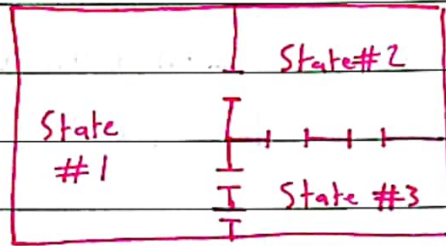 State#2
State
#1
State #3